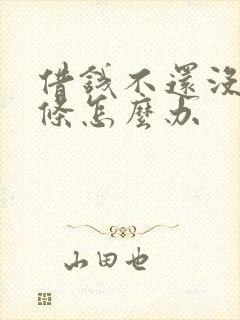 借錢不還沒
條怎麼办
山田也